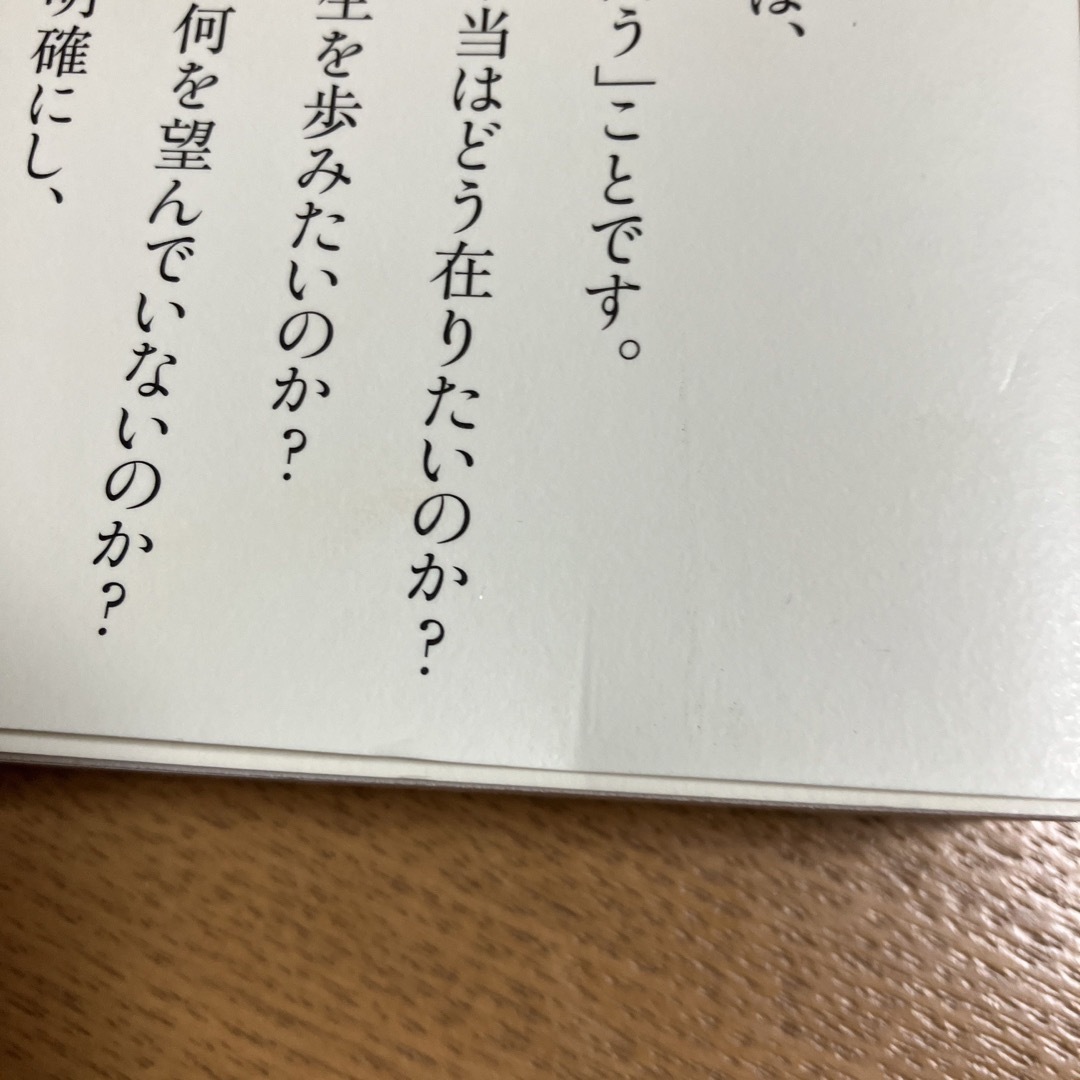 は、
う」ことです。
当はどう在りたいのか？
生を歩みたいのか？
何を望んでいないのか？
明確にし、